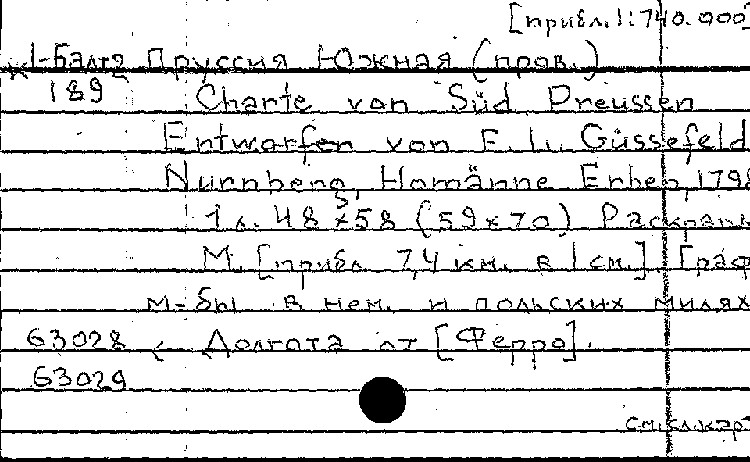 [прибл. 1:740.000]
К1-Балт2 Пруссия Южная (пров.)
189 Charte von Süd Preussen
Entworfen von F. L. Güssefeld
Nürnberg, Homänns Erben, 1798
1 л. 48 x 58 (59 x 70) Раскраш
М. [прибл. 7,4 км. в 1 см.] Граф
м-бы в нем. и польских милях
63028 Долгота от [Ферро].
63029
см. сл. кар